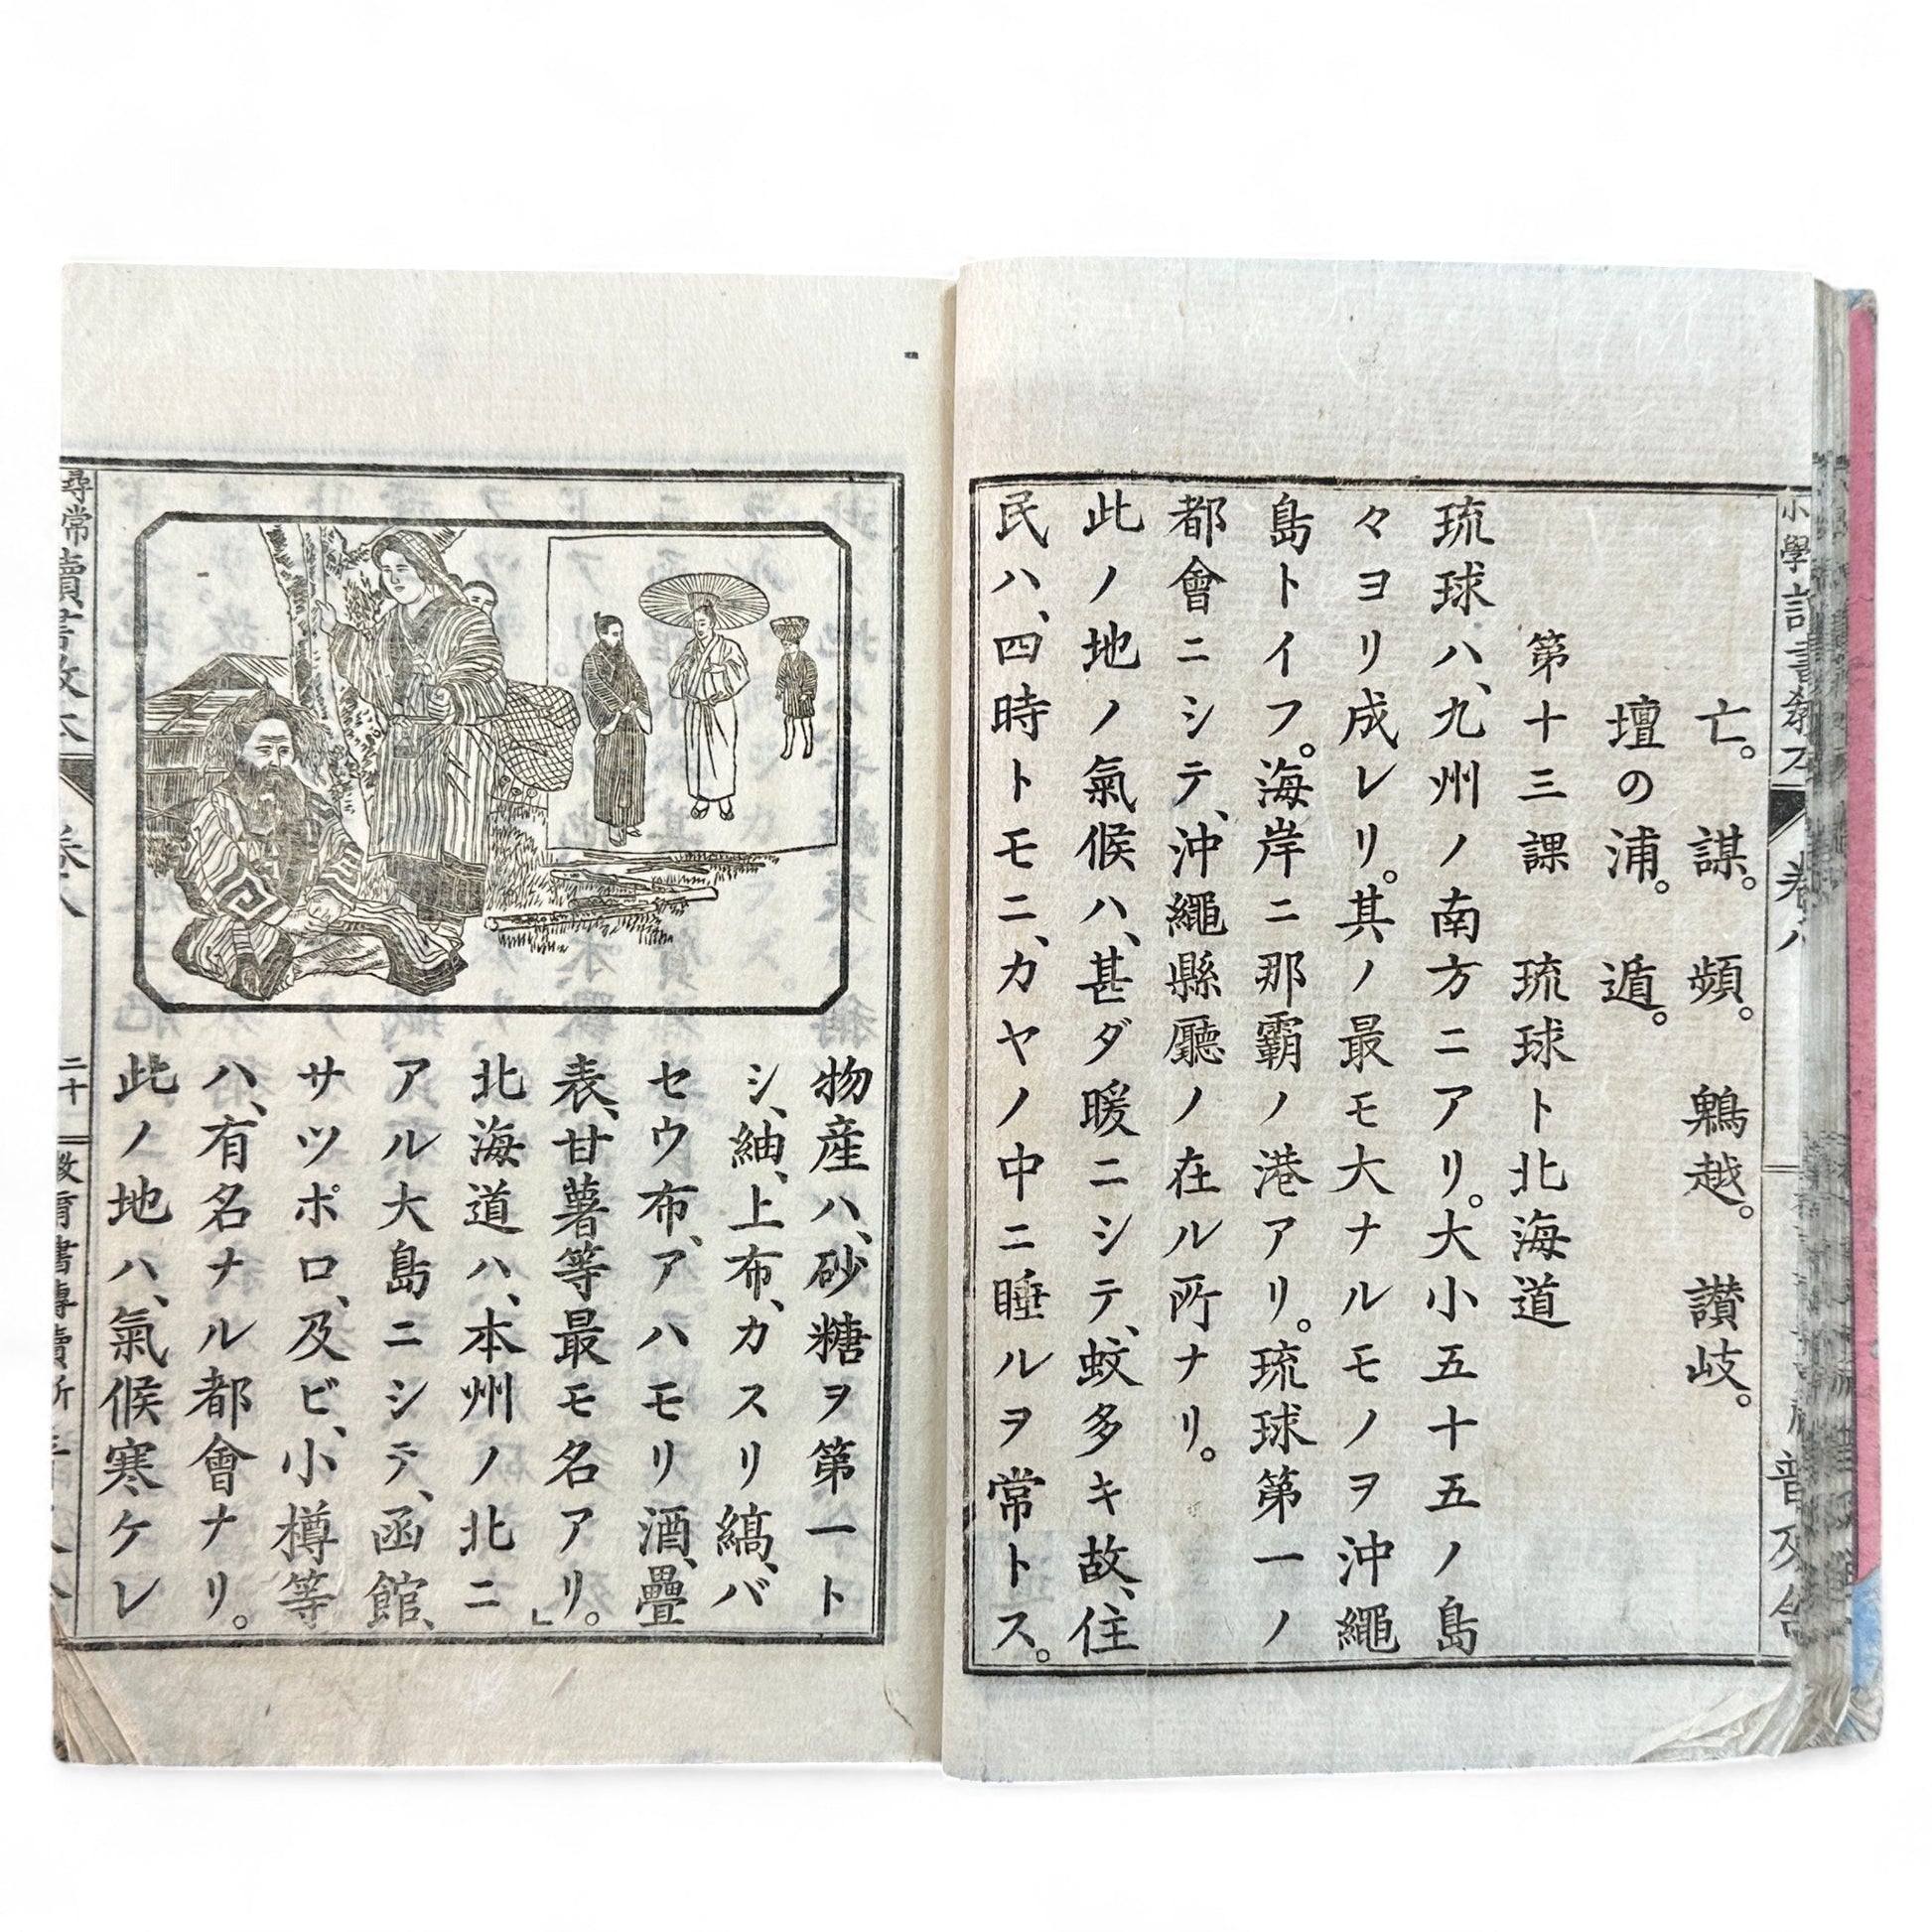 亡。　謀。　頻。　鵯越。　讃岐。
壇の浦。　遁。
第十三課　琉球ト北海道
琉球ハ、九州ノ南方ニアリ。大小五十五ノ島
々ヨリ成レリ。其ノ最モ大ナルモノヲ沖繩
島トイフ。海岸ニ那霸ノ港アリ。琉球第一ノ
都會ニシテ、沖繩縣廳ノ在ル所ナリ。
此ノ地ノ氣候ハ、甚ダ暖ニシテ、蚊多キ故、住
民ハ、四時トモニ、カヤノ中ニ睡ルヲ常トス。
物産ハ、砂糖ヲ第一ト
シ、紬、上布、カスリ縞、バ
セウ布、アハモリ酒、疊
表、甘薯等最モ名アリ。」
北海道ハ、本州ノ北ニ
アル大島ニシテ、函館、
サツポロ、及ビ、小樽等
ハ、有名ナル都會ナリ。
此ノ地ハ、氣候寒ケレ
尋常讀書教本
卷八
二十